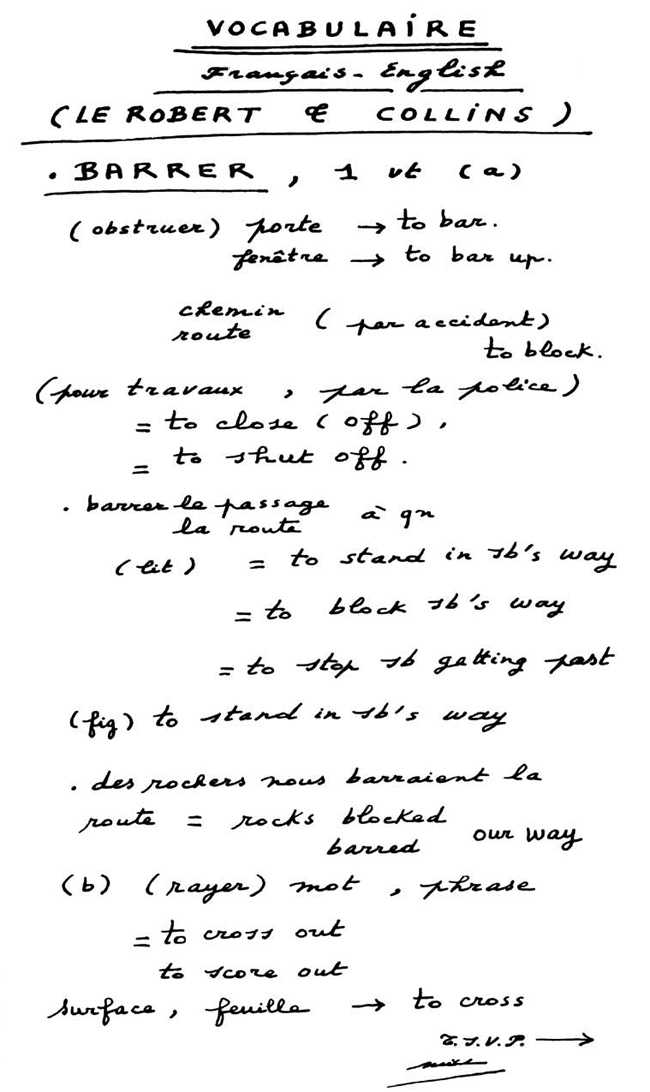 VOCABULAIRE
Français - English
(LE ROBERT & COLLINS)
. BARRER, 1 vt (a)
(obstruer) porte → to bar.
fenêtre → to bar up.
chemin
route (par accident)
to block.
(pour travaux, par la police)
= to close (off),
= to shut off.
. barrer le passage
la route à qn
(lit) = to stand in sb's way
= to block sb's way
= to stop sb getting past
(fig) to stand in sb's way
. des rochers nous barraient la
route = rocks blocked
barred our way
(b) (rayer) mot, phrase
= to cross out
to score out
surface, feuille → to cross
T.S.V.P. →